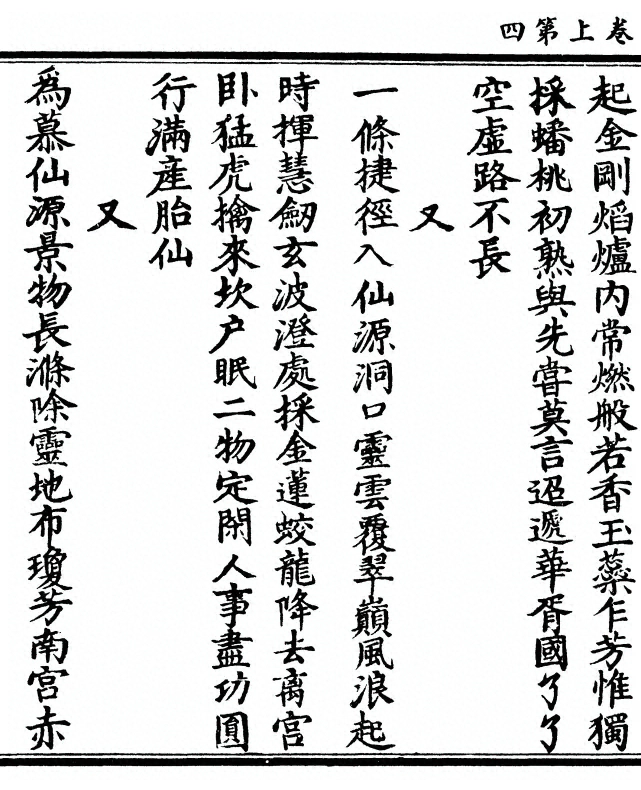 卷上第四
起金剛熖爐内常燃般若香玉蘂乍芳惟獨
採蟠桃初熟與先嘗莫言迢遞華胥國了了
空虛路不長
又
一條捷徑入仙源洞口靈雲覆翠巔風浪起
時揮慧劒玄波澄處採金蓮蛟龍降去离宫
卧猛虎擒來坎户眠二物定閑人事盡功圓
行滿産胎仙
又
為慕仙源景物長滌除靈地布瓊芳南宫赤